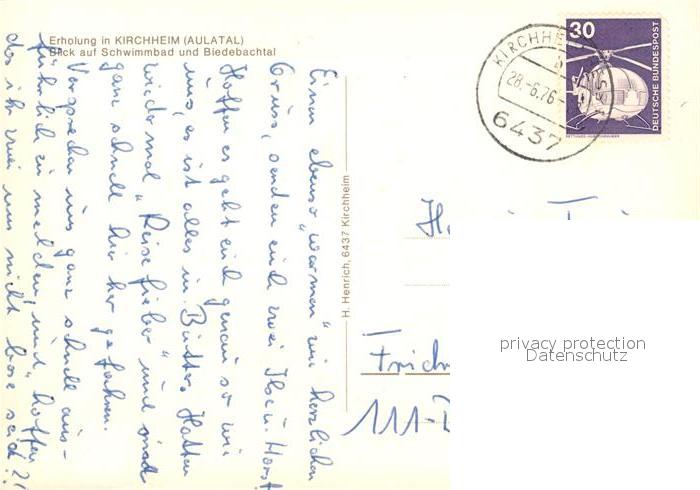 Erholung in KIRCHHEIM (AULATAL)
Blick auf Schwimmbad und Biedebachtal
Einen ebenso "warmen" wie herzlichen
Gruss, senden euch zwei Ilse u. Horst
Hoffen es geht euch genau so wie
uns, es ist alles in Butter. Hatten
wieder mal "Reisefieber" und sind
ganz schnell hier her gefahren.
Versprechen uns ganz schnell aus-
führlich zu melden, und hoffen
das ihr zwei uns nicht böse seid?!
H. Henrich, 6437 Kirchheim
KIRCHHEIM
28.-6.76
6437
30
DEUTSCHE BUNDESPOST
privacy protection
Datenschutz
111-